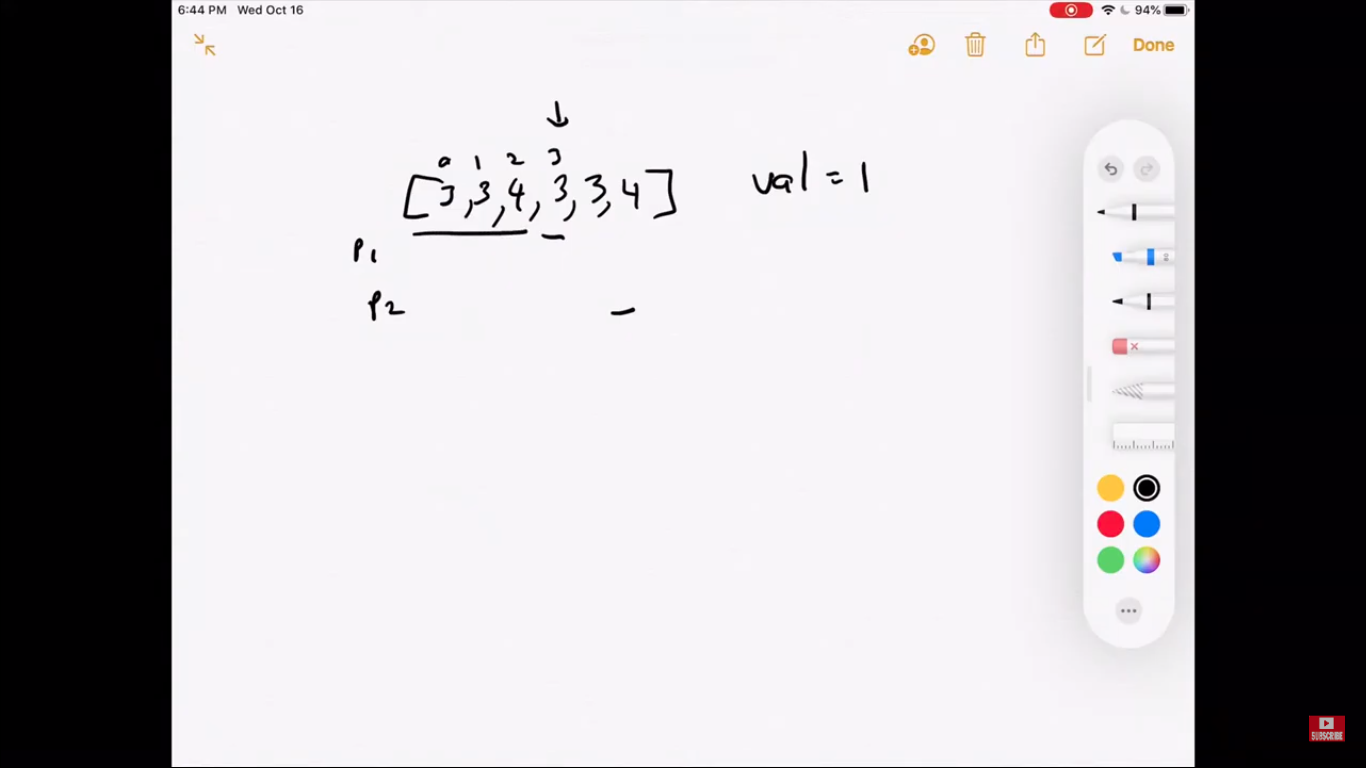 6:44 PM Wed Oct 16 94%
Done
0 1 2 3
[3,3,4,3,3,4] val = 1
P1
P2
SUBSCRIBE